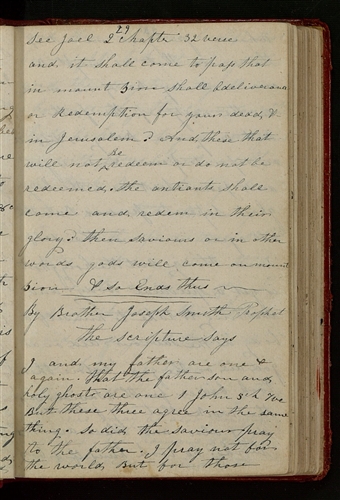 29
See Joel 2 Chapte 32 verse
and it shall come to pass that
in mount Zion shall be deliverance
or Redemption for your dead, &
in Jerusalem? And these that
will not be redeem or do not be
redeemed. the antients shall
come and redeem in their
glory? then saviours or in other
words gods will come on mount
Zion & so Ends thus
By Brother Joseph Smith Prophet
the scripture says
I and my father are one &
again. that the father son and
holy ghost are one 1 John 5th 7 ve
But these three agree in the same
thing. So did the saviour pray
to the father. I pray not for
the world But for those